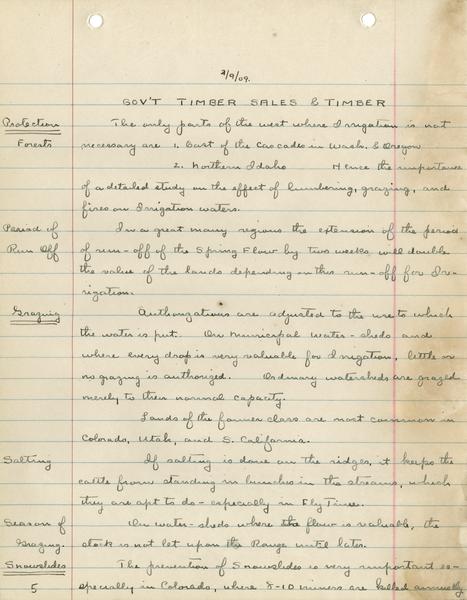 2/9/09.
GOV'T TIMBER SALES & TIMBER
Protection The only parts of the west where Irrigation is not
Forests necessary are 1. East of the Cascades in Wash. & Oregon
2. Northern Idaho Hence the importance
of a detailed study on the effect of lumbering, grazing, and
fires on Irrigation waters.
Period of In a great many regions the extension of the period
Run Off of run-off of the Spring Flow by two weeks will double
the value of the lands depending on this run-off for Ir-
rigation.
Grazing Authorizations are adjusted to the use to which
the water is put. On Municipal Water-sheds and
where every drop is very valuable for Irrigation, little or
no grazing is authorized. Ordinary watersheds are grazed
merely to their normal capacity.
Lands of the former class are most common in
Colorado, Utah, and S. California.
Salting If salting is done on the ridges, it keeps the
cattle from standing in bunches in the streams, which
they are apt to do - especially in Fly Time.
Season of On water-sheds where the flow is valuable, the
Grazing. stock is not let upon the Range until later.
Snowslides The prevention of Snowslides is very important es-
5 pecially in Colorado, where 8-10 miners are killed annually